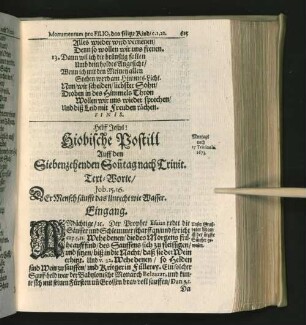 Monumentum pro FILIO, das selige Kind/ c.1.22. 615
Alles wieder wird verneuen/
Denn so wollen wir uns freuen.
23. Dann will ich dir brünstig küssen
Und dein holdes Angesicht/
Wenn ich mit den Meinen allen
Stehen werd am Himmels-Licht.
Nun wir scheiden/ liebster Sohn/
Droben in des Himmels Thron
Wollen wir uns wieder sprechen/
Und diß Leid mit Freuden rächen.
FINIS.
Helff Jesu!
Hiobische Postill
Auff den
Siebenzehenden Sontag nach Trinit.
Text-Worte/
Job. 15.16.
Der Mensch säufft das Unrecht wie Wasser.
Eingang.
Andächtige/ etc. Der Prophet Esaias redt die
Säuffer und Schlemmer scharff an und spricht
cap. 5. Wehe denen/ die des Morgens früe
auff sind/ des Sauffens sich zu fleissigen/
und sitzen/ biß in die Nacht/ daß sie der Wein
erhitzt. Und v. 22. Wehe denen/ so Helden
sind Wein zu sauffen/ und Krieger in Füllerey. Ein solcher
Sauff-held war der Babylonische Monarch Belsazer, und
mit seinen Fürsten und Grossen brav voll sauffen/ Dan. 5.
Da